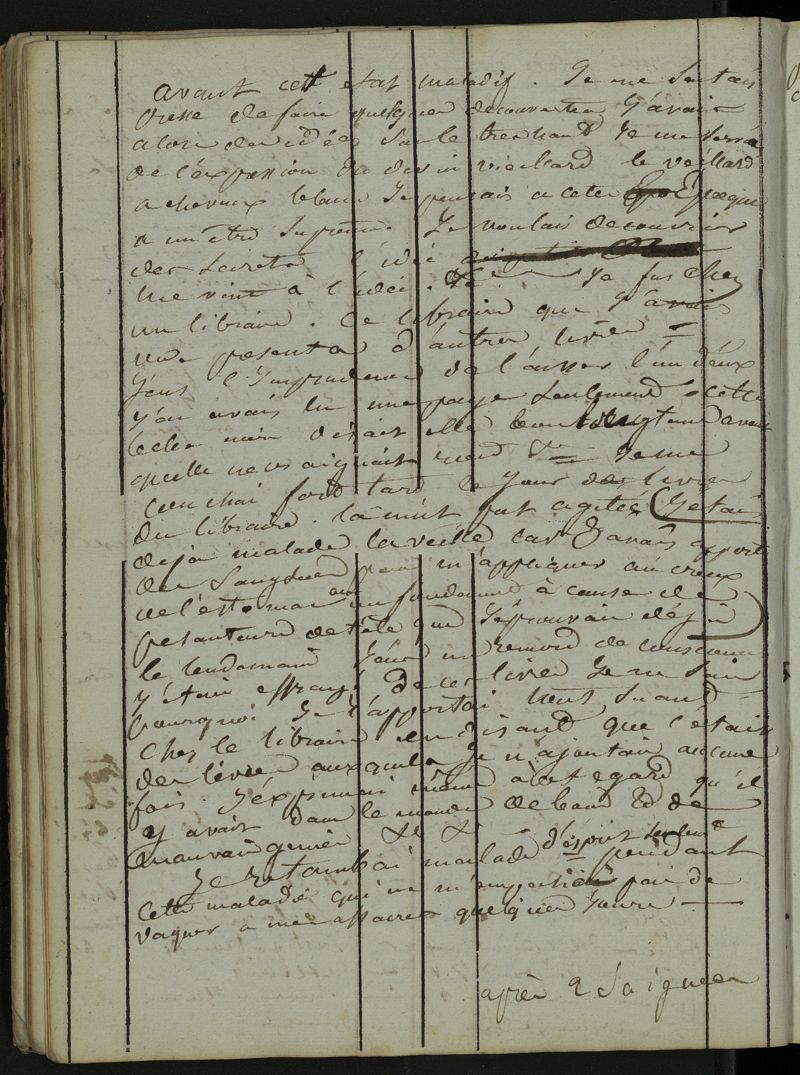 avant cett etat maladif. Je me sentais
presse de faire quelques decouvertes J'avais
alors des idées sur le tres haud Je me
de l'expression du divin vieillard le veillard
a cheveux blanc Je pensais a cete Epoque
a un être Suprême. Je voulais decouvrir
des Secrets l'idée
me vint à l'idée. Je fus chez
un libraire. Ce libraire que J'avais
me presenta d'autres livres =
J'eus l'Imprudence de l'aisser l'un d'eux
J'en avais lu une page Seulement cette
belle mere disait elle bien longtems avant
quelle ne us = Je me
couchai fort tard le Jour des livres
du libraire. la nuit fut agitée (J'etais
deja malade la veille car J'avais apporté
des Sangsues pour m'appliquer au creux
de l'estomac ou au fondement à cause de
pesanteurs de tête que J'éprouvais déja)
le lendemain J'eus un remord de conscience
J'étais effrayé de ces livres Je ne sais
pourquoi Je l'apportai tout suand
chez le libraire en disand que c'etais
des livres auxquels Je n'ajoutais aucune
fois. J'exprimai même à cet egard qu'il
y avait dans le monde de bons Et de
mauvais genies & &
Je retombai malade d'esprit seulemt pendant
cette maladie qui ne m'empechais pas de
vaquer a mes affaires quelques Jours —
après 2 Saignées